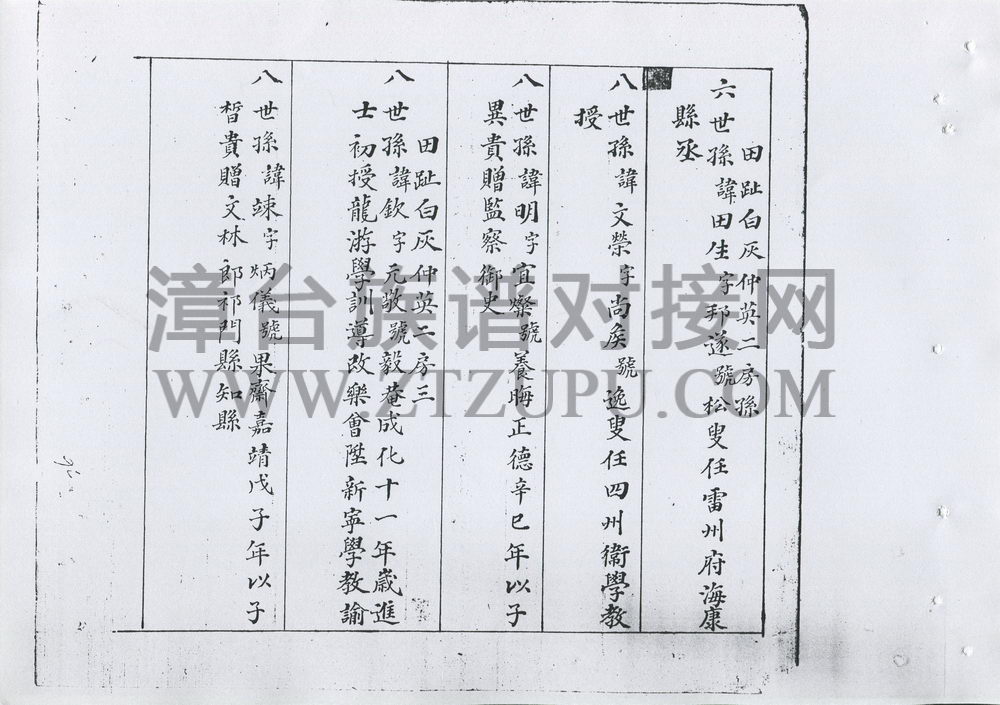 田趾白灰仲英二房孫
六世孫諱田生字邦遂號松叟任雷州府海康
縣丞
八世孫諱文榮字尚矦號逸叟任四州衛學教
授
八世孫諱明字宜燦號養晦正德辛巳年以子
異貴贈監察御史
田趾白灰仲英二房三
八世孫諱欽字元敬號毅菴成化十一年歲進
士初授龍游學訓導改樂會陞新寧學教諭
八世孫諱竦字炳儀號果齋嘉靖戊子年以子
晳貴贈文林郎祁門縣知縣
漳台族谱对接网
WWW.ZTZUPU.COM